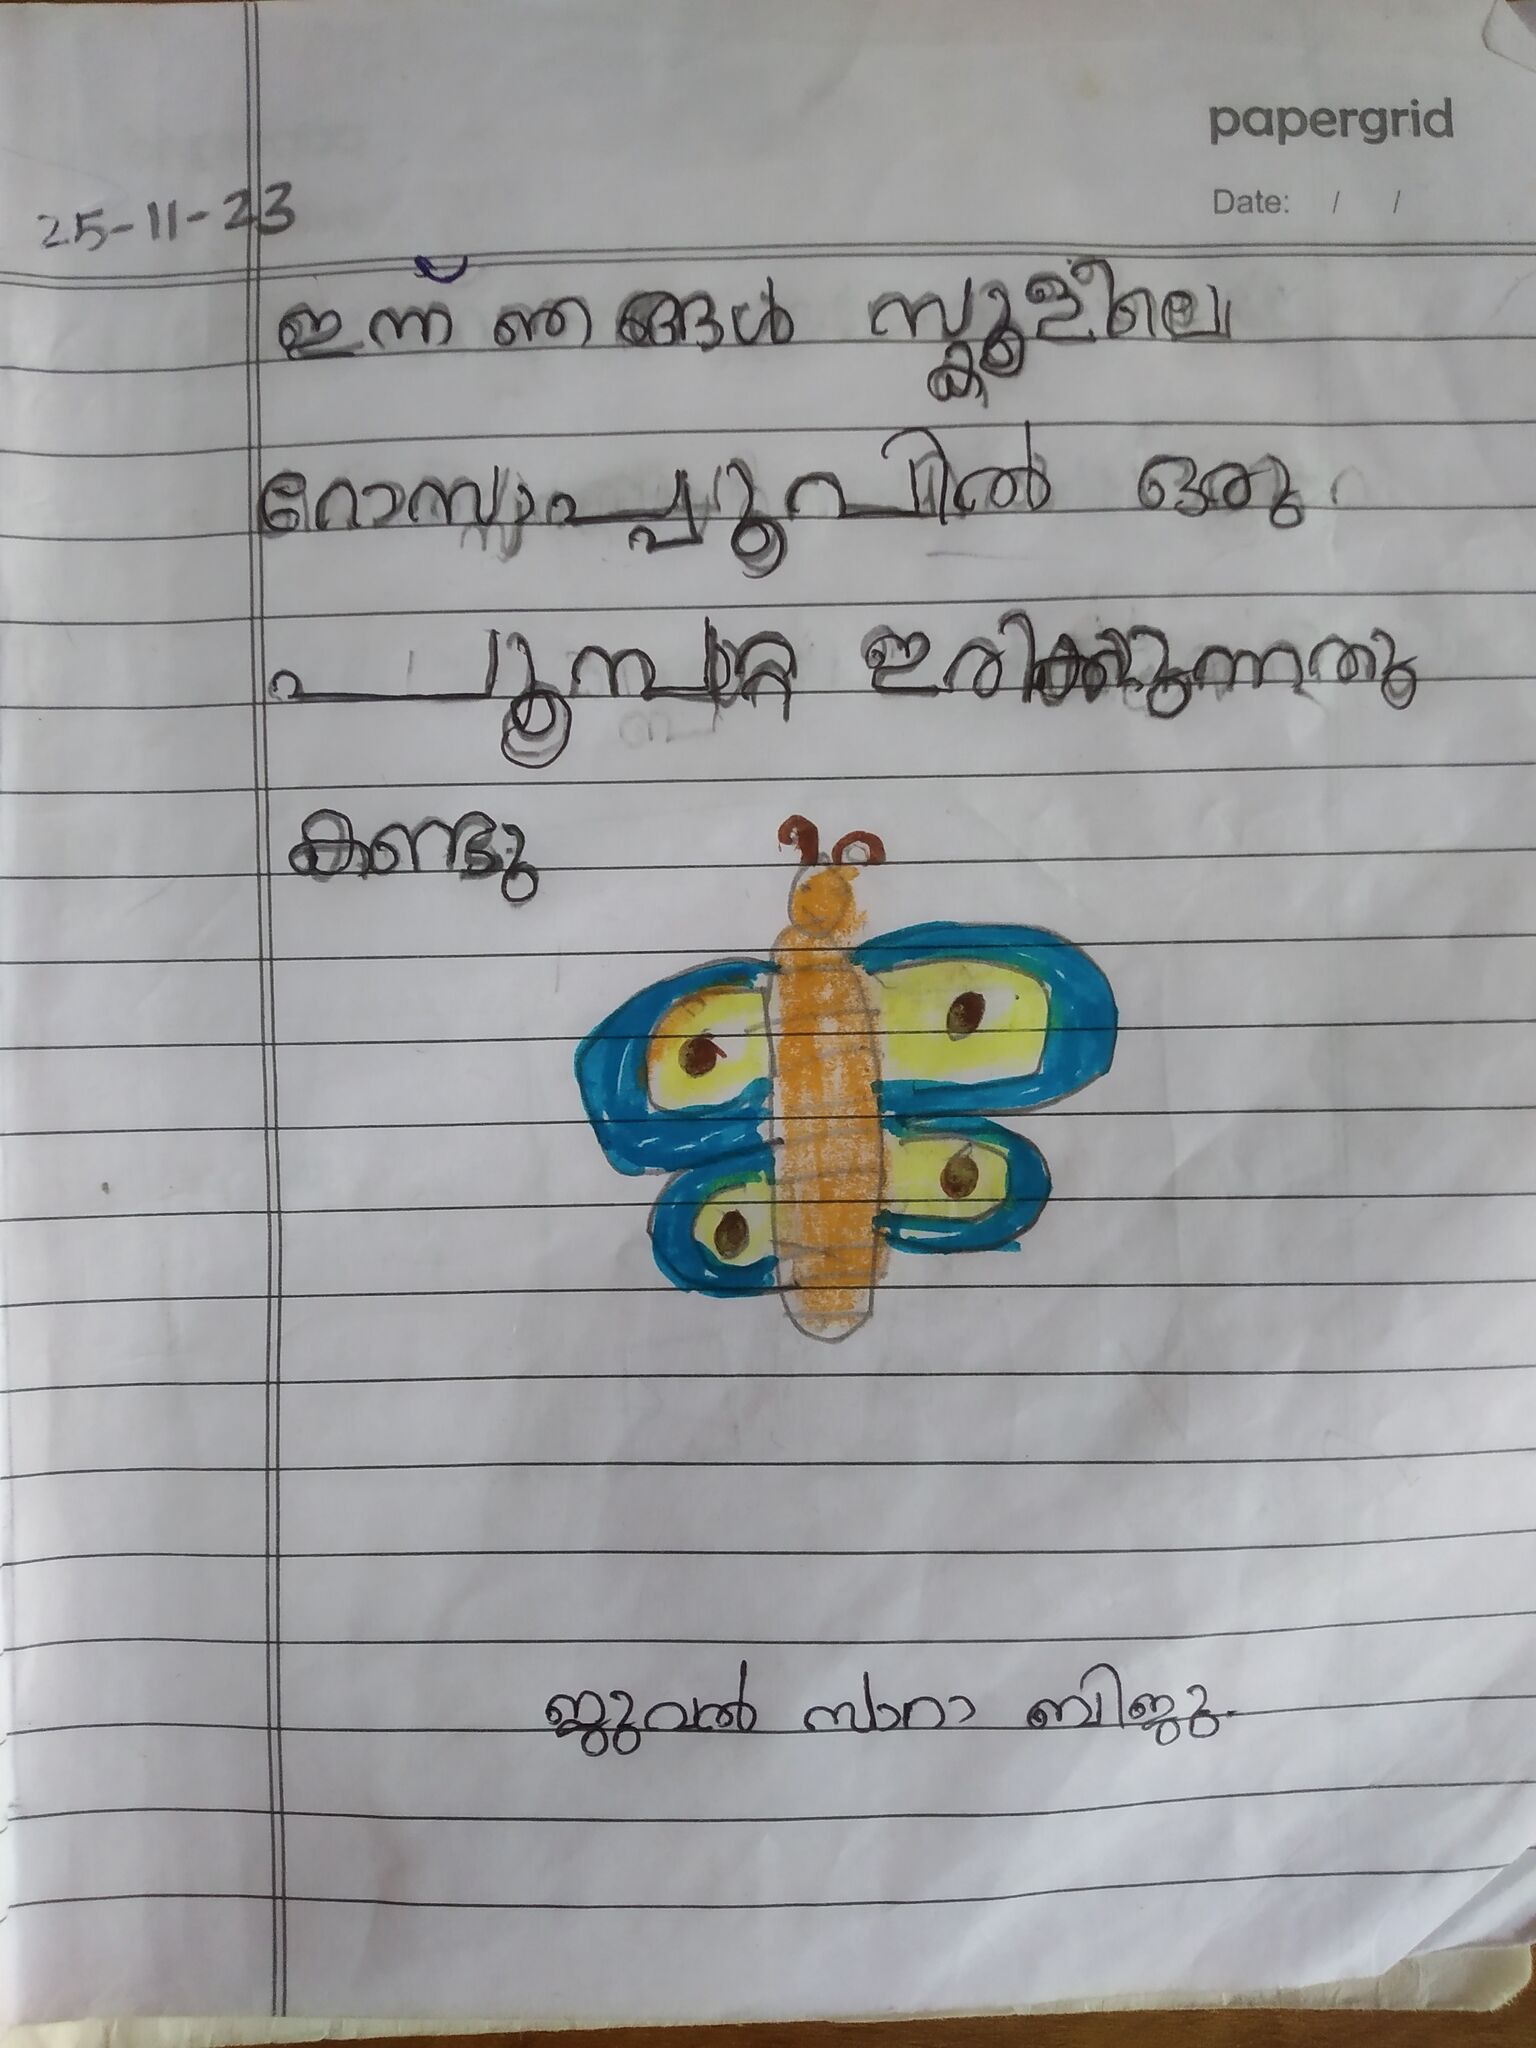 papergrid
Date: / /
25-11-23
ഇന്ന് ഞങ്ങൾ സ്കൂളിലെ
റോസാപ്പൂവിൽ ഒരു
പൂമ്പാറ്റ ഇരിക്കുന്നതു
കണ്ടു
ജുവൽ സാറാ ബിജു.